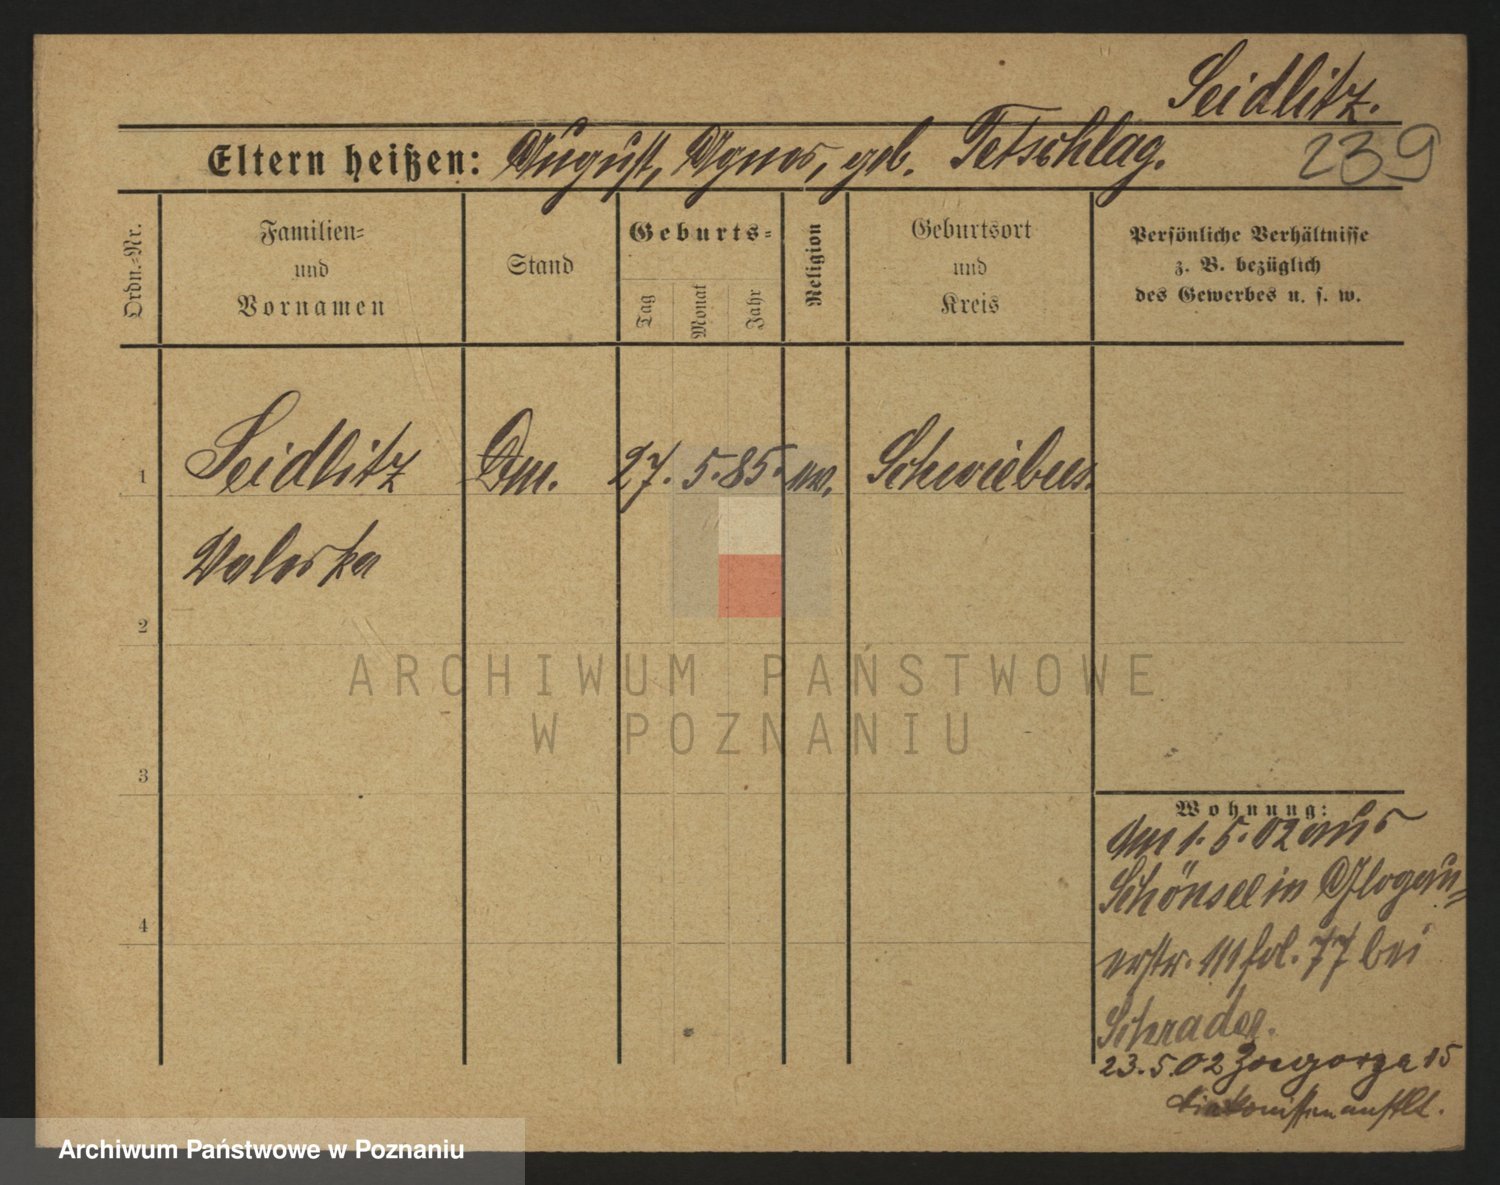 Seidlitz.
Eltern heißen: August, Agnes, geb. Tetschlag.
239
Ordn.-Nr.
Familien-
und
Vornamen
Stand
Geburts-
Tag
Monat
Jahr
Religion
Geburtsort
und
Kreis
Persönliche Verhältnisse
z. B. bezüglich
des Gewerbes u. s. w.
1
Seidlitz
Dm.
27.
5.
85.
ev.
Schwiebus.
Valeska
2
ARCHIWUM PAŃSTWOWE
W POZNANIU
3
Wohnung:
Am 1. 5. 02 aus
Schönsee in Glogau-
erstr. 111 fol. 77 bei
Schrader.
23. 5. 02 Zregorze 15
Diakonissenanstlt.
4
Archiwum Państwowe w Poznaniu